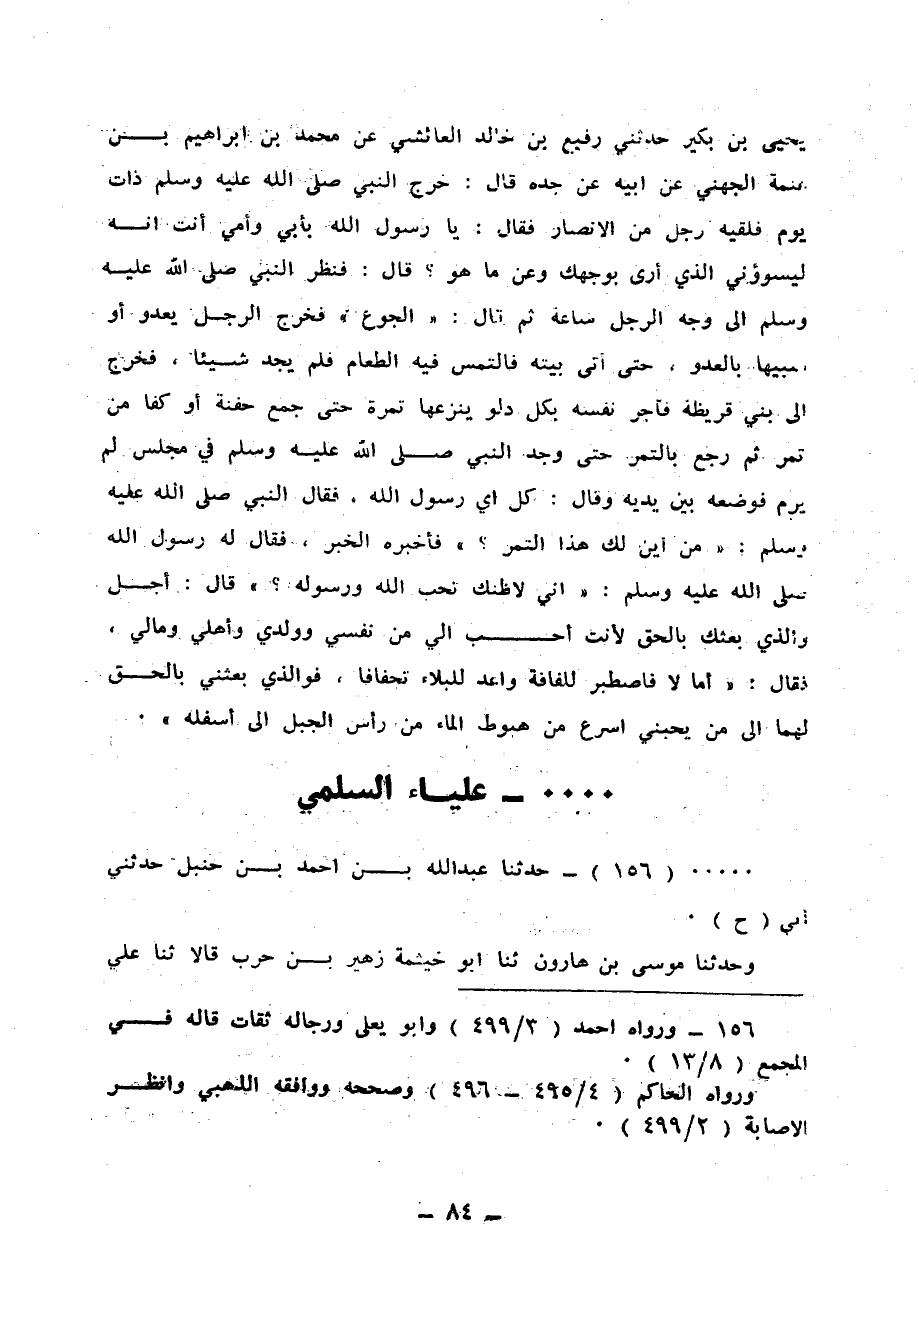 يحيى بن بكير حدثني رفيع بن خالد العائشي عن محمد بن ابراهيم بن
عنمة الجهني عن ابيه عن جده قال : خرج النبي صلى الله عليه وسلم ذات
يوم فلقيه رجل من الانصار فقال : يا رسول الله بأبي وأمي أنت انه
ليسوؤني الذي أرى بوجهك وعن ما هو ؟ قال : فنظر النبي صلى الله عليه
وسلم الى وجه الرجل ساعة ثم قال : « الجوع » فخرج الرجل يعدو أو
شبيها بالعدو ، حتى أتى بيته فالتمس فيه الطعام فلم يجد شيئا ، فخرج
الى بني قريظة فآجر نفسه بكل دلو ينزعها تمرة حتى جمع حفنة أو كفا من
تمر ثم رجع بالتمر حتى وجد النبي صلى الله عليه وسلم في مجلس لم
يرم فوضعه بين يديه وقال : كل اي رسول الله . فقال النبي صلى الله عليه
وسلم : « من أين لك هذا التمر ؟ » فأخبره الخبر ، فقال له رسول الله
صلى الله عليه وسلم : « اني لاظنك تحب الله ورسوله ؟ » قال : أجل
والذي بعثك بالحق لأنت أحب الي من نفسي وولدي وأهلي ومالي ،
فقال : « أما لا فاصطبر للفاقة واعد للبلاء تجفافا ، فوالذي بعثني بالحق
لهما الى من يحبني اسرع من هبوط الماء من رأس الجبل الى أسفله » ٠
٠٠٠٠ ــ علباء السلمي
٠٠٠٠٠ ( ١٥٦ ) ــ حدثنا عبدالله بن احمد بن حنبل حدثني
أبي ( ح ) ٠
وحدثنا موسى بن هارون ثنا ابو خيثمة زهير بن حرب قالا ثنا علي
١٥٦ ــ ورواه احمد ( ٤٩٩/٣ ) وابو يعلى ورجاله ثقات قاله في
المجمع ( ١٣/٨ ) ٠
ورواه الحاكم ( ٤٩٥/٤ ــ ٤٩٦ ) وصححه ووافقه الذهبي وانظر
الاصابة ( ٤٩٩/٢ ) ٠
ــ ٨٤ ــ